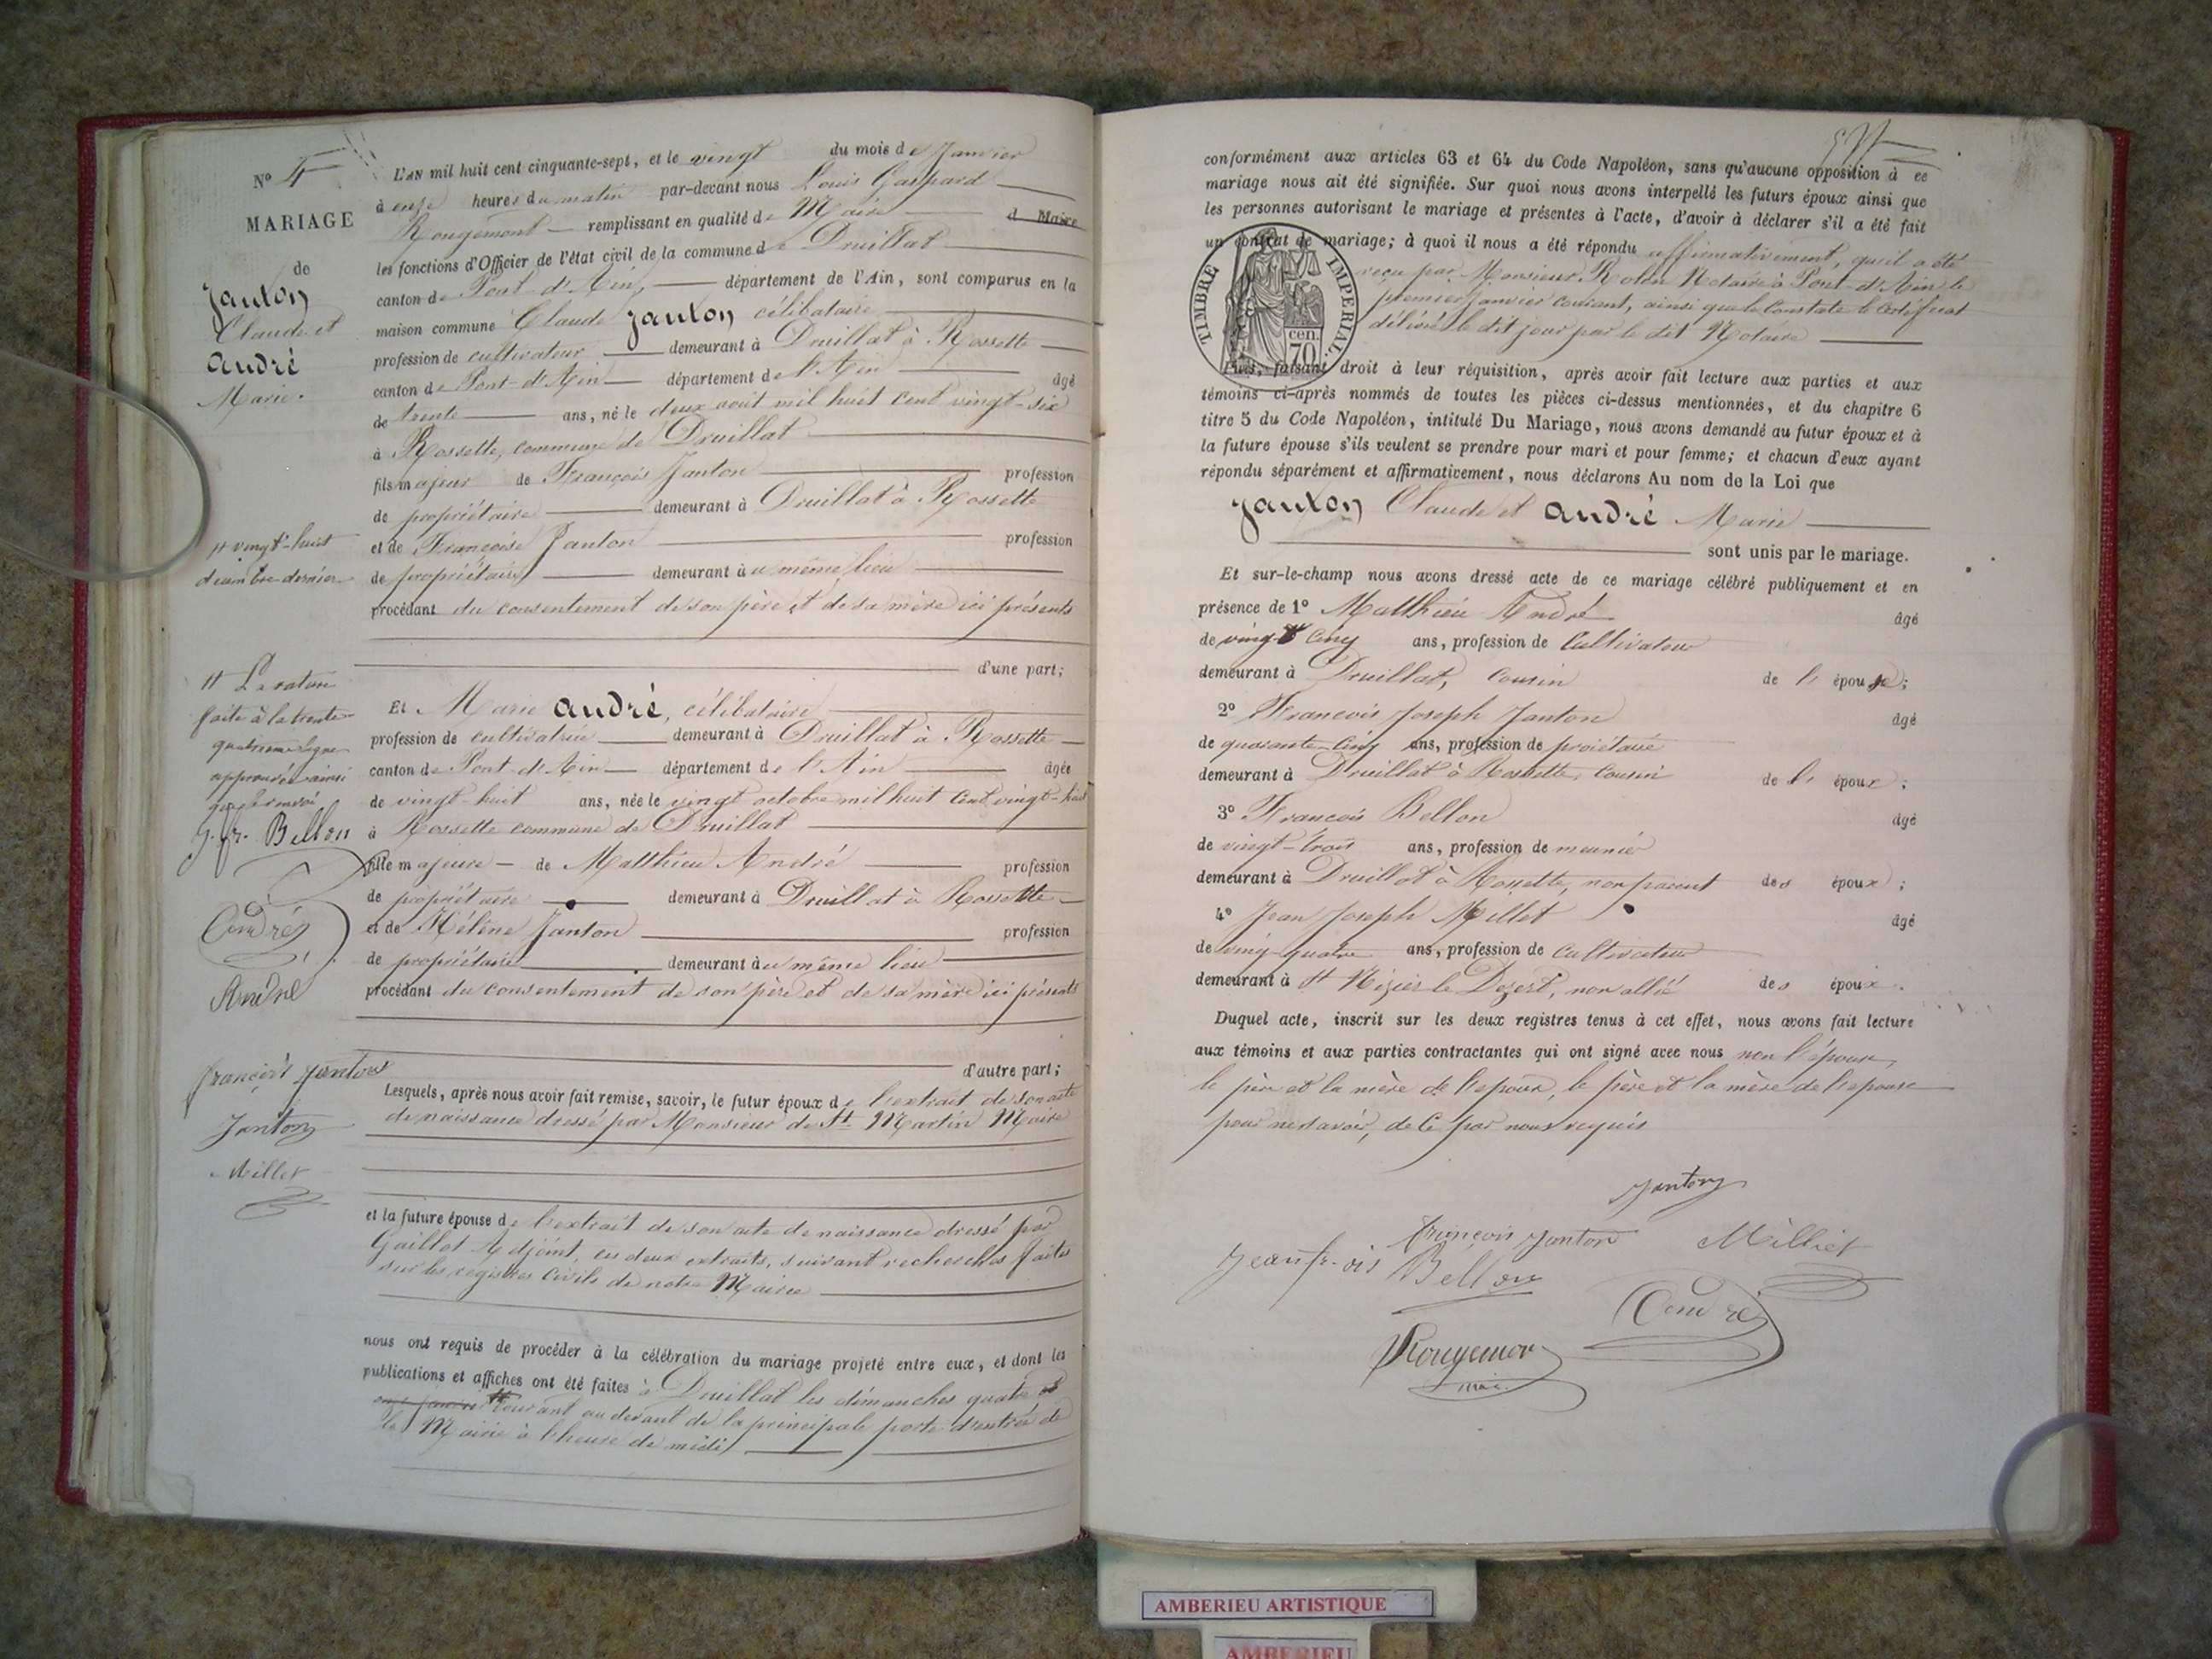 N° 4
MARIAGE
de
Janton
Claude et
André
Marie.
L'AN mil huit cent cinquante-sept, et le vingt du mois de Janvier
à onze heures du matin par-devant nous Louis Gaspard
Rougemont remplissant en qualité de Maire d Maire
les fonctions d'Officier de l'état civil de la commune de Druillat
canton de Pont-d'Ain, département de l'Ain, sont comparus en la
maison commune Claude Janton célibataire
profession de cultivateur demeurant à Druillat à Rossette
canton de Pont-d'Ain département de l'Ain âgé
de trente ans, né le deux août mil huit cent vingt-six
à Rossette, commune de Druillat
fils majeur de François Janton profession
de propriétaire demeurant à Druillat à Rossette
et de Françoise Janton profession
de propriétaire demeurant au même lieu
procédant du consentement de son père et de sa mère ici présents
d'une part;
Et Marie André, célibataire
profession de cultivatrice demeurant à Druillat à Rossette
canton de Pont-d'Ain département de l'Ain âgée
de vingt-huit ans, née le vingt octobre mil huit cent vingt-huit
à Rossette commune de Druillat
fille majeure de Matthieu André profession
de propriétaire demeurant à Druillat à Rossette
et de Hélène Janton profession
de propriétaire demeurant au même lieu
procédant du consentement de son père et de sa mère ici présents
d'autre part;
Lesquels, après nous avoir fait remise, savoir, le futur époux de l'extrait de son acte
de naissance dressé par Monsieur de St Martin Maire
et la future épouse de l'extrait de son acte de naissance dressé par
Gaillot Adjoint, ces deux extraits, suivant recherches faites
sur les registres civils de notre Mairie
nous ont requis de procéder à la célébration du mariage projeté entre eux, et dont les
publications et affiches ont été faites à Druillat les dimanches quatre et
onze janvier courant au devant de la principale porte d'entrée de
la Mairie à l'heure de midi
vingt-huit
décembre dernier
La rature
faite à la trente
quatrième ligne
approuvée ainsi
que le renvoi
J. fr. Bellon
André
André
françois janton
Janton
Millet
conformément aux articles 63 et 64 du Code Napoléon, sans qu'aucune opposition à ce
mariage nous ait été signifiée. Sur quoi nous avons interpellé les futurs époux ainsi que
les personnes autorisant le mariage et présentes à l'acte, d'avoir à déclarer s'il a été fait
un contrat de mariage; à quoi il nous a été répondu affirmativement, qu'il a été
reçu par Monsieur Rolin Notaire à Pont-d'Ain le
premier janvier courant, ainsi que le constate le certificat
délivré le dit jour par le dit Notaire
TIMBRE IMPERIAL.
cen.
70
Puis, faisant droit à leur réquisition, après avoir fait lecture aux parties et aux
témoins ci-après nommés de toutes les pièces ci-dessus mentionnées, et du chapitre 6
titre 5 du Code Napoléon, intitulé Du Mariage, nous avons demandé au futur époux et à
la future épouse s'ils veulent se prendre pour mari et pour femme; et chacun d'eux ayant
répondu séparément et affirmativement, nous déclarons Au nom de la Loi que
Janton Claude et André Marie
sont unis par le mariage.
Et sur-le-champ nous avons dressé acte de ce mariage célébré publiquement et en
présence de 1° Matthieu André âgé
de vingt cinq ans, profession de Cultivateur
demeurant à Druillat, cousin de l' épouse;
2° François Joseph Janton âgé
de quarante-cinq ans, profession de proiétaire
demeurant à Druillat à Rossette, cousin de l' époux;
3° François Bellon âgé
de vingt-trois ans, profession de meunier
demeurant à Druillat à Rossette, non parent des époux;
4° Jean Joseph Millet âgé
de vingt quatre ans, profession de cultivateur
demeurant à St Nizier le Dezert, non allié des époux.
Duquel acte, inscrit sur les deux registres tenus à cet effet, nous avons fait lecture
aux témoins et aux parties contractantes qui ont signé avec nous non l'épouse,
le père et la mère de l'époux, le père et la mère de l'épouse
pour ne savoir, de ce par nous requis
Janton
françois janton Milliet
Jean fr-ois Bellon
André
Rougemont
maire
AMBERIEU ARTISTIQUE
AMBERIEU